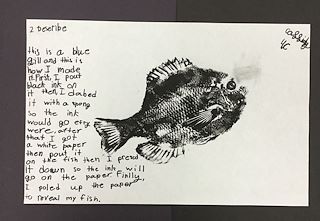 2 Describe
this is a blue
gill and this is
how I made
it. First, I pout
black ink on
it then, I dabed
it with a spong
so the ink
would go ety
were. after
that I got
a white paper
then pout it
on the fish then I presed
it down so the ink will
go on the paper. Finlly,
I poled up the paper
to reveal my fish.
4C